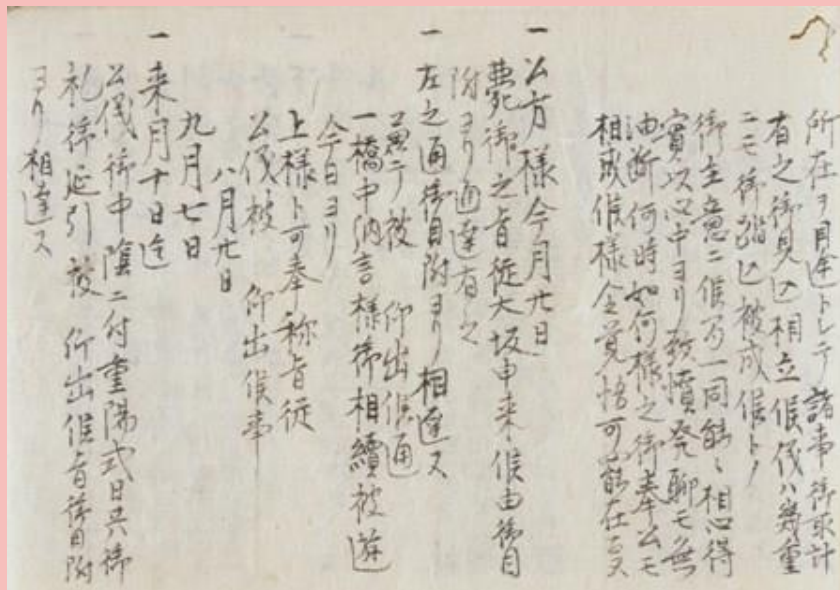 所在ヲ目途トシテ諸事御取計
有之御見込相立候儀ハ幾重
ニモ御踏込被成候トノ
御主意ニ候乃一同能々相心得
實以心中ヨリ致憤発聊モ無
油断何時如何様之御奉公モ
相成候様全覚悟可罷在
一公方様今月廿日
薨御之旨従大坂申来候由御目
附ヨリ通達有之
一左之通御目附ヨリ相達ス
思召ヲ以被 仰出候通
一橋中納言様御相續被遊
今日ヨリ
上様ト可奉称旨従
公儀被 仰出候事
八月廿日
九月七日
一来月十日迄
公儀御中陰ニ付重陽式日共御
礼御延引被 仰出候旨御目附
ヨリ相達ス